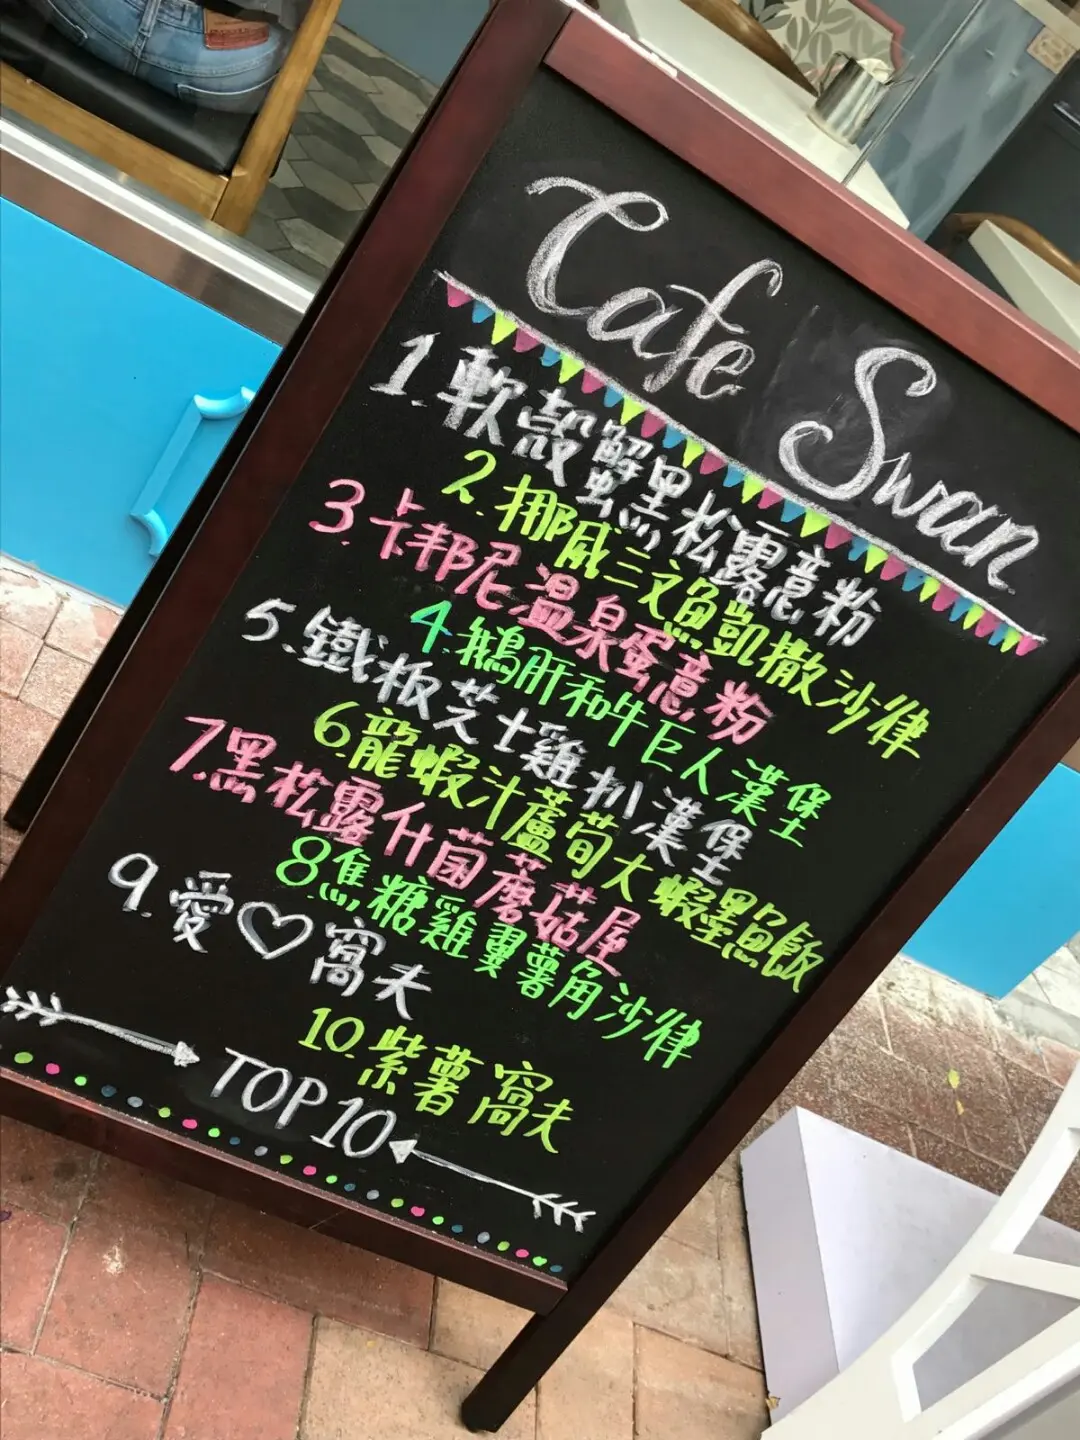 Cafe Swan
1. 軟殼蟹黑松露意粉
2. 挪威三文魚凱撒沙律
3. 卡邦尼溫泉蛋意粉
4. 鵝肝和牛巨人漢堡
5. 鐵板芝士雞扒漢堡
6. 龍蝦汁蘆荀大蝦墨魚飯
7. 黑松露什菌蘑菇屋
8. 焦糖雞翼薯角沙律
9. 愛♡窩夫
10. 紫薯窩夫
TOP 10